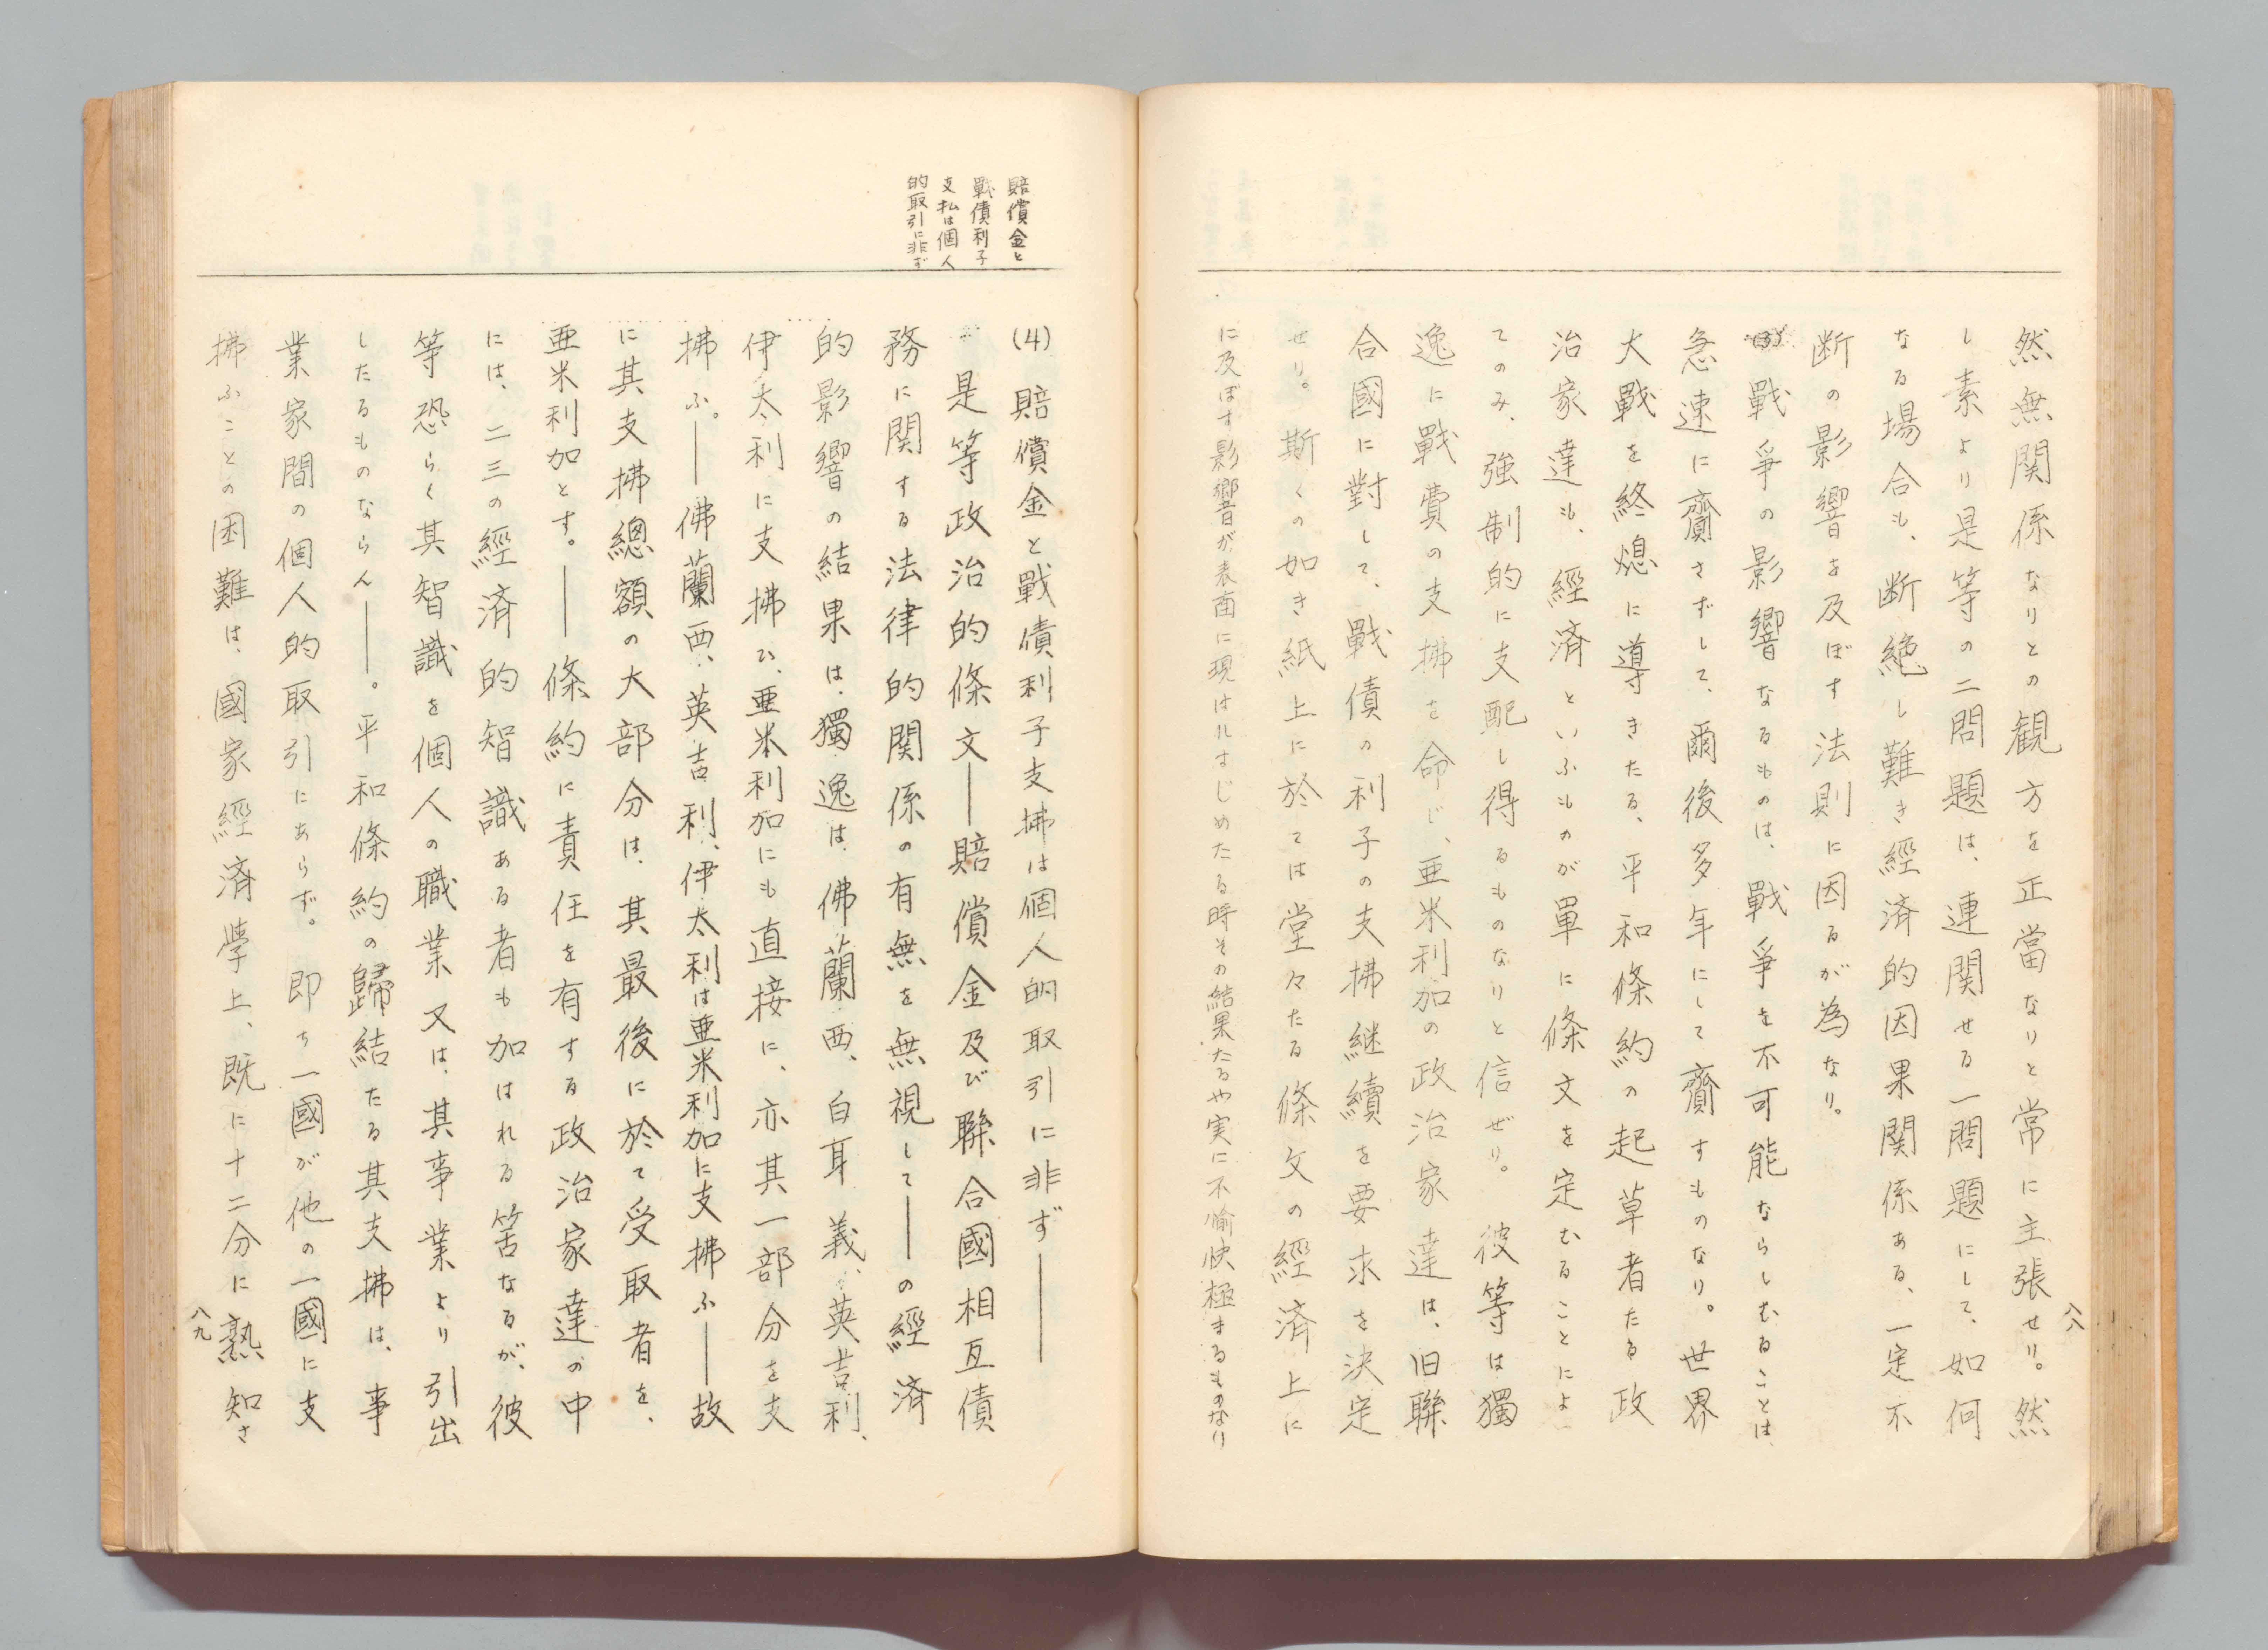 然無関係なりとの観方を正當なりと常に主張せり。然
し素より是等の二問題は、連関せる一問題にして、如何
なる場合も、断絶し難き經済的因果関係ある、一定不
断の影響を及ぼす法則に因るが為なり。
(3)戰爭の影響なるものは、戰爭を不可能ならしむることは、
急速に齎さずして、爾後多年にして齎すものなり。世界
大戰を終熄に導きたる、平和條約の起草者たる政
治家達も、經済といふものが單に條文を定むることによ
てのみ、強制的に支配し得るものなりと信ぜり。彼等は獨
逸に戰費の支拂を命じ、亜米利加の政治家達は、旧聯
合國に對して、戰債の利子の支拂継續を要求を決定
せり。斯くの如き紙上に於ては堂々たる條文の經済上に
に及ぼす影響が表面に現はれはじめたる時その結果たるや実に不愉快極まるものなり
八八
賠償金と
戰債利子
支払は個人
的取引に非ず
(4)賠償金と戰債利子支拂は個人的取引に非ず――
是等政治的條文――賠償金及び聯合國相互債
務に関する法律的関係の有無を無視して――の經済
的影響の結果は、獨逸は、佛蘭西、白耳義、英吉利、
伊太利に支拂ひ、亜米利加にも直接に、亦其一部分を支
拂ふ。――佛蘭西、英吉利、伊太利は亜米利加に支拂ふ――故
に其支拂總額の大部分は、其最後に於て受取者を、
亜米利加とす。――條約に責任を有する政治家達の中
には、二三の經済的智識ある者も加はれる筈なるが、彼
等恐らく其智識を個人の職業又は、其事業より引出
したるものならん――。平和條約の歸結たる其支拂は、事
業家間の個人的取引にあらず。即ち一國が他の一國に支
拂ふことの困難は、國家經済學上、既に十二分に熟知さ
八九